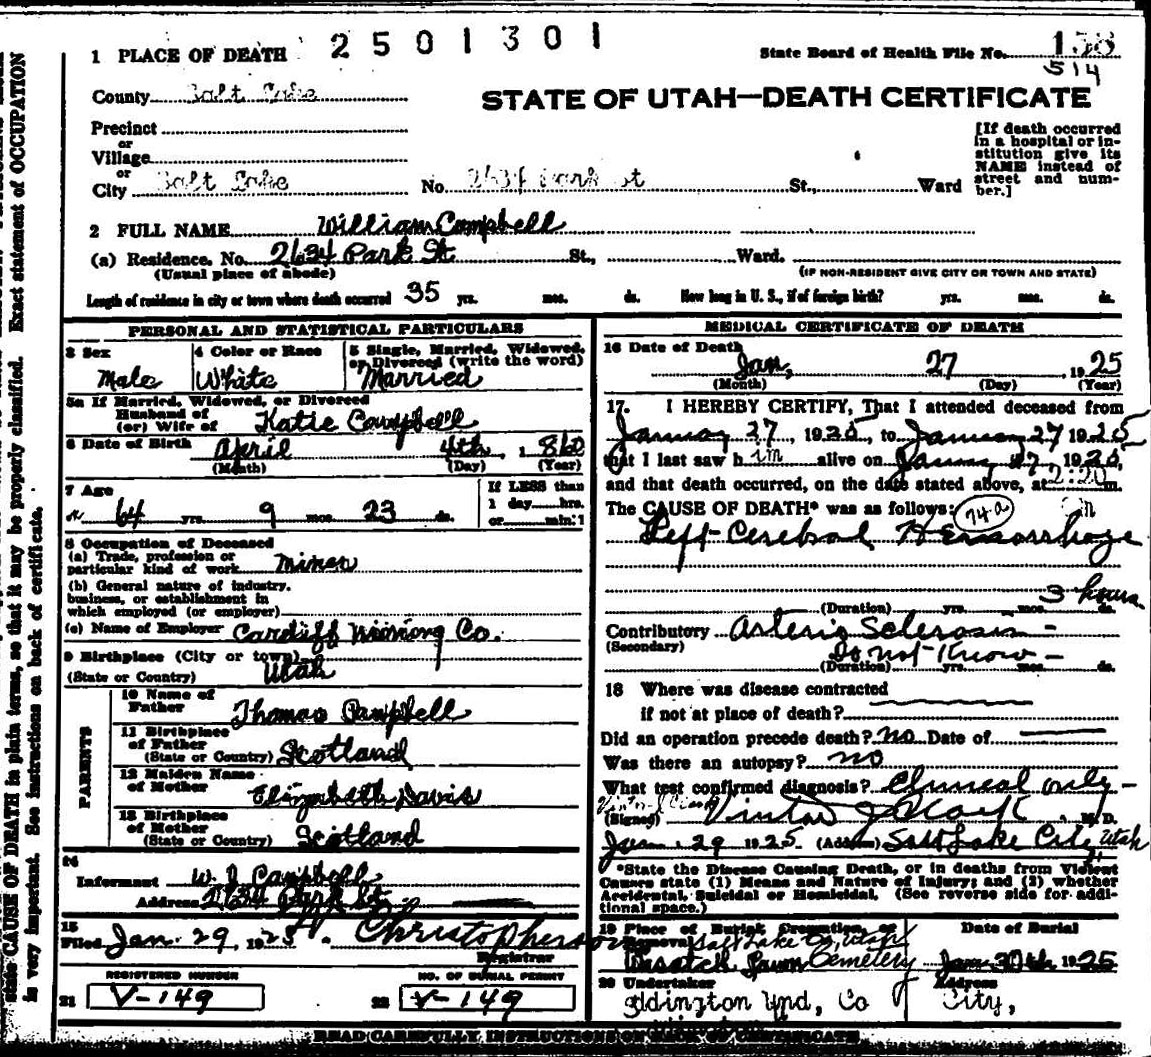 2501301
1 PLACE OF DEATH
State Board of Health File No. 138
514
County Salt Lake
STATE OF UTAH—DEATH CERTIFICATE
Precinct
or
Village
or
City Salt Lake No. 2634 Park St St., Ward
[If death occurred
in a hospital or in-
stitution give its
NAME instead of
street and num-
ber.]
2 FULL NAME William Campbell
(a) Residence. No. 2634 Park St. St., Ward.
(Usual place of abode) (IF NON-RESIDENT GIVE CITY OR TOWN AND STATE)
Length of residence in city or town where death occurred 35 yrs. mos. ds. How long in U. S., if of foreign birth? yrs. mos. ds.
PERSONAL AND STATISTICAL PARTICULARS
3 Sex Male
4 Color or Race White
5 Single, Married, Widowed,
or Divorced (write the word)
Married
5a If Married, Widowed, or Divorced
Husband of
(or) Wife of Katie Campbell
6 Date of Birth April 4th, 1860
(Month) (Day) (Year)
7 Age
64 yrs. 9 mos. 23 ds.
If LESS than
1 day hrs.
or min.
8 Occupation of Deceased
(a) Trade, profession or
particular kind of work Miner
(b) General nature of industry,
business, or establishment in
which employed (or employer)
(c) Name of Employer Cardiff Mining Co.
9 Birthplace (City or town)
(State or Country) Utah
PARENTS
10 Name of
Father Thomas Campbell
11 Birthplace
of Father
(State or Country) Scotland
12 Maiden Name
of Mother Elizabeth Davis
13 Birthplace
of Mother
(State or Country) Scotland
14
Informant W. J. Campbell
Address 2634 Park St.
15
Filed Jan. 29, 1925 Christopherson
Registrar
REGISTERED NUMBER NO. OF BURIAL PERMIT
21 V-149 22 V-149
MEDICAL CERTIFICATE OF DEATH
16 Date of Death
Jan, 27, 1925
(Month) (Day) (Year)
17. I HEREBY CERTIFY, That I attended deceased from
January 27, 1925, to January 27 1925
that I last saw him alive on January 27, 1925,
and that death occurred, on the date stated above, at 2:20 m.
The CAUSE OF DEATH* was as follows: 74a
Left Cerebral Hemorrhage
3 hours
(Duration) yrs. mos. ds.
Contributory Arterio Sclerosis -
(Secondary) Do not Know -
(Duration) yrs. mos. ds.
18 Where was disease contracted
if not at place of death?
Did an operation precede death? No Date of
Was there an autopsy? no
What test confirmed diagnosis? Clinical only -
(Signed) M. D.
Jan 29 1925 (Address) Salt Lake City, Utah
*State the Disease Causing Death, or in deaths from Violent
Causes state (1) Means and Nature of Injury; and (2) whether
Accidental, Suicidal or Homicidal. (See reverse side for addi-
tional space.)
19 Place of Burial, Cremation, or
Removal Salt Lake Co, Utah
Wasatch Lawn Cemetery
Date of Burial
Jan 30th 1925
20 Undertaker
Eddington Und, Co
Address
City,
READ CAREFULLY, INSTRUCTIONS ON BACK OF CERTIFICATE
state CAUSE OF DEATH in plain terms, so that it may be properly classified. Exact statement of OCCUPATION
is very important. See instructions on back of certificate.